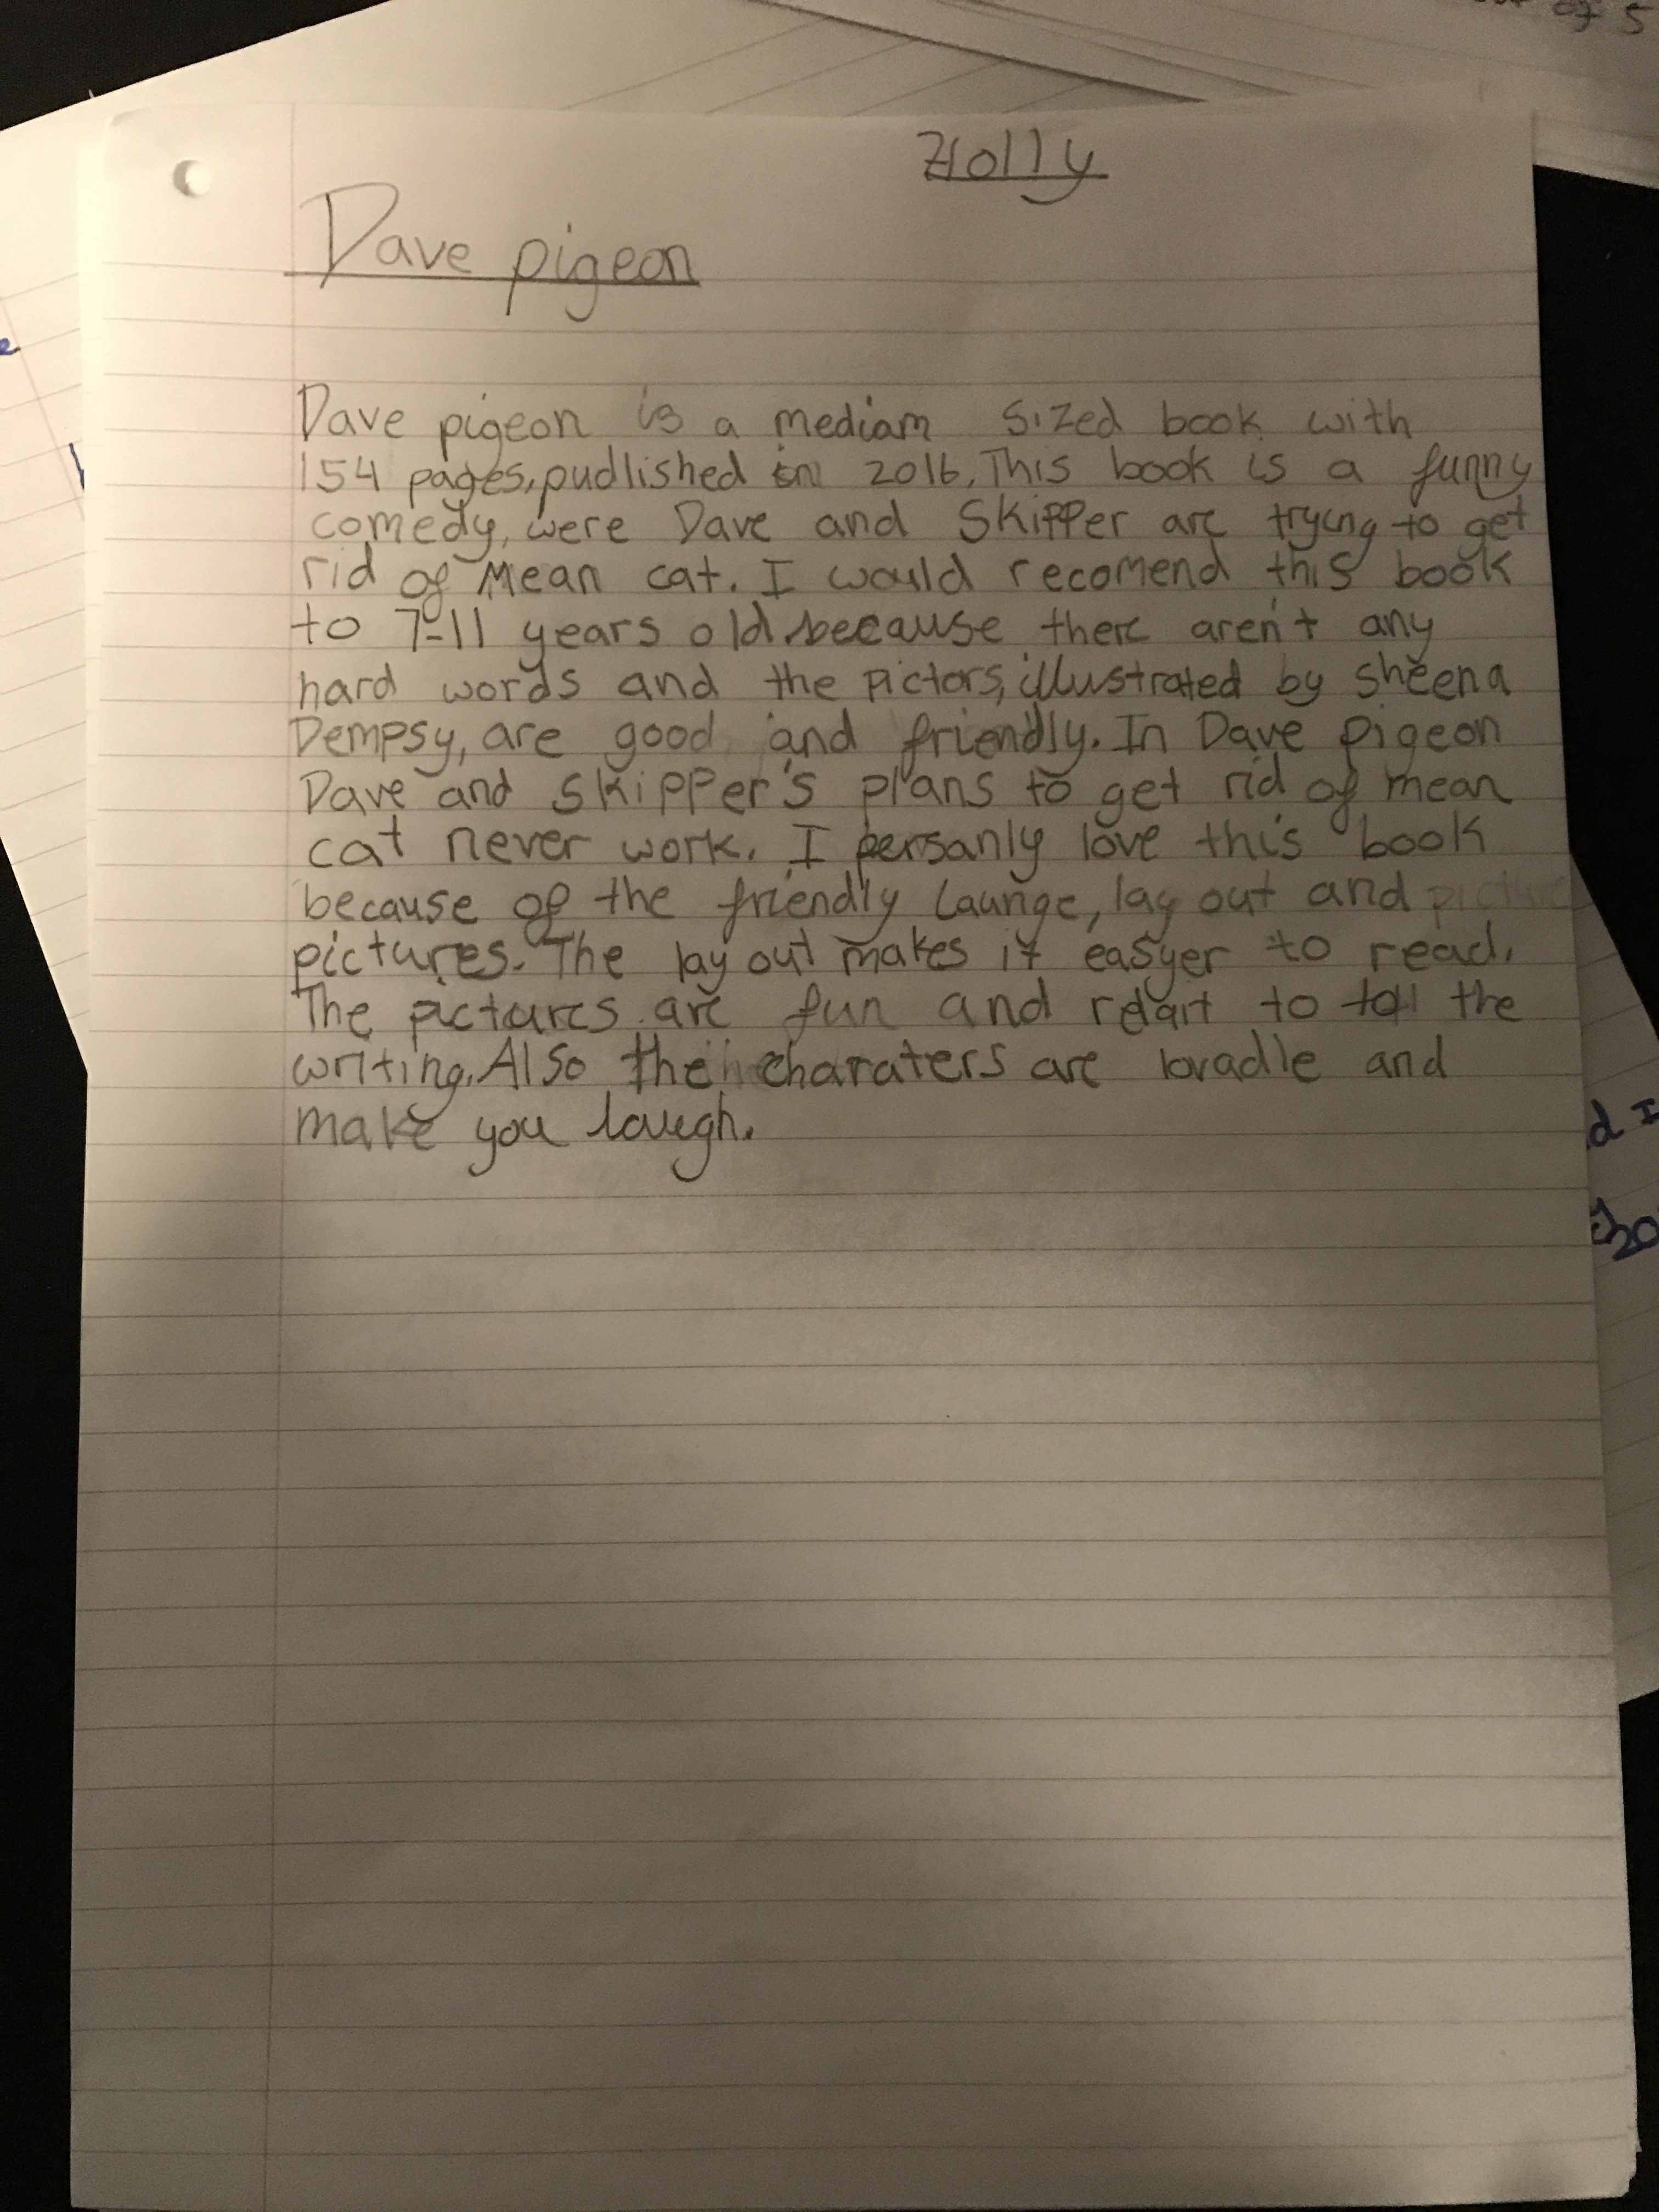 of 5
Holly
Dave pigeon
Dave pigeon is a mediam sized book with
154 pages, pudlished in 2016. This book is a funny
comedy, were Dave and Skipper are trying to get
rid of Mean cat. I would recomend this book
to 7-11 years old because there aren't any
hard words and the pictors, illustrated by sheena
Dempsy, are good and friendly. In Dave pigeon
Dave and skipper's plans to get rid of mean
cat never work. I persanly love this book
because of the friendly Launge, lay out and
pictures. The lay out makes it easyer to read.
The pictures are fun and relait to the
writing. Also the charaters are lovadle and
make you laugh.
d I